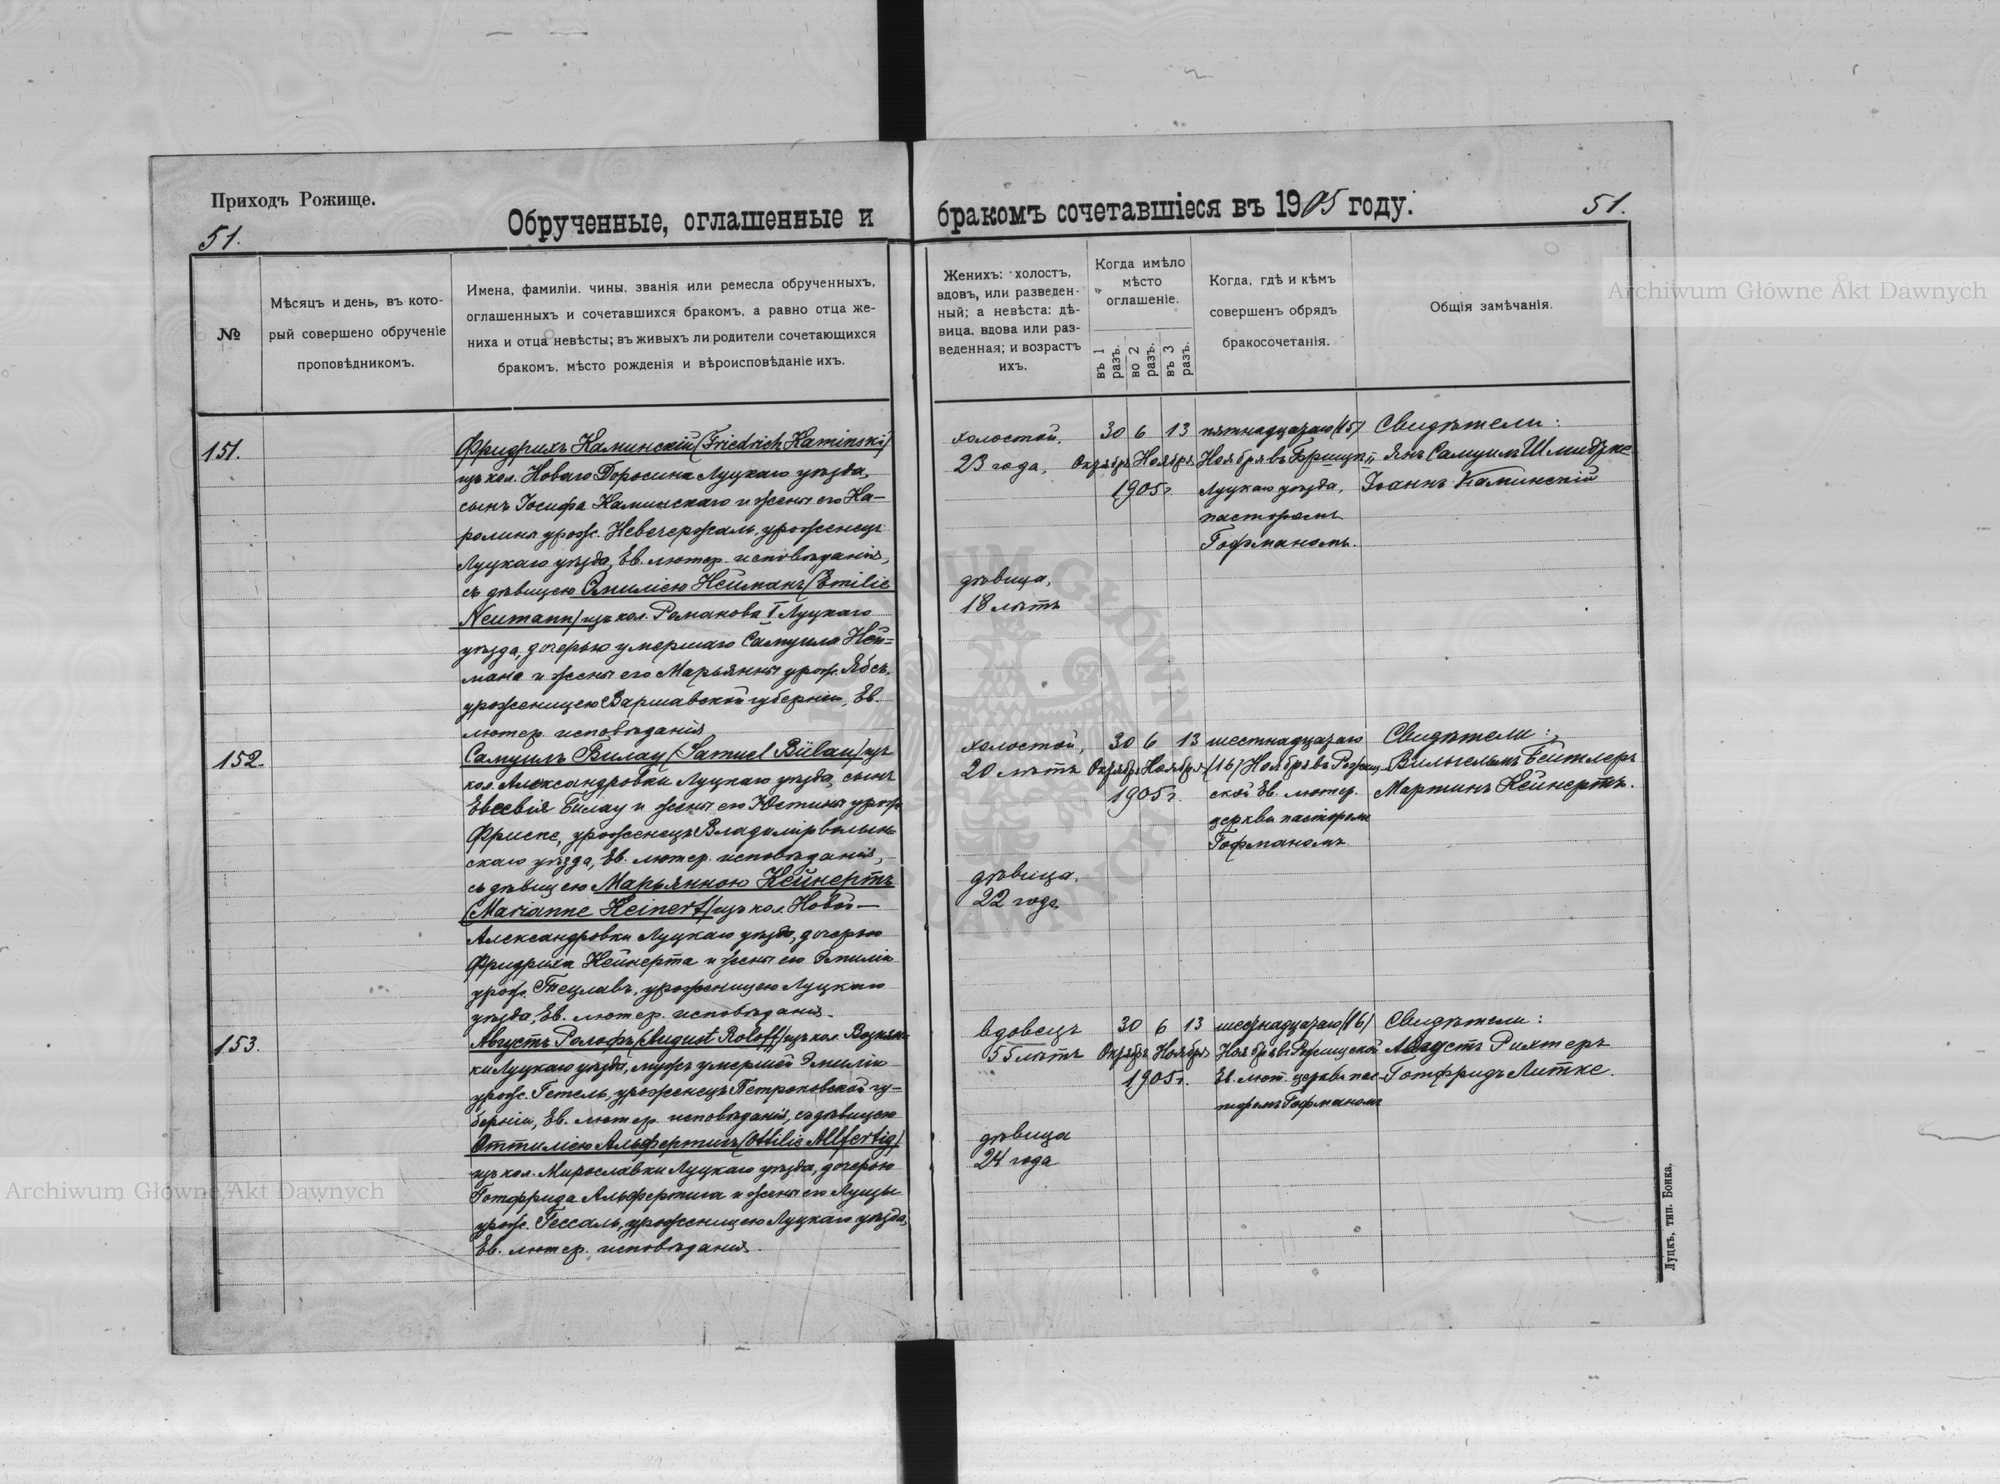 Приходъ Рожище.
51.
Обрученные, оглашенные и
бракомъ сочетавшіеся въ 1905 году.
51.
№
Мѣсяцъ и день, въ кото-
рый совершено обрученіе
проповѣдникомъ.
Имена, фамиліи, чины, званія или ремесла обрученныхъ,
оглашенныхъ и сочетавшихся бракомъ, а равно отца же-
ниха и отца невѣсты; въ живыхъ ли родители сочетающихся
бракомъ, мѣсто рожденія и вѣроисповѣданіе ихъ.
Женихъ: холостъ,
вдовъ, или разведен-
ный; а невѣста: дѣ-
вица, вдова или раз-
веденная; и возрастъ
ихъ.
Когда имѣло
мѣсто
оглашеніе.
въ 1
разъ.
во 2
разъ.
въ 3
разъ.
Когда, гдѣ и кѣмъ
совершенъ обрядъ
бракосочетанія.
Общія замѣчанія.
151.
Фридрихъ Каминскій (Friedrich Kaminski)
изъ кол. Новаго Боросина Луцкаго уѣзда,
сынъ Іосифа Каминскаго и жены его Ка-
ролины урож. уроженецъ
Луцкаго уѣзда, Ев. лютер. исповѣданія,
съ дѣвицею Эмиліею Нейманъ (Emilie
Neumann) изъ кол. Романовъ I Луцкаго
уѣзда, дочерью умершаго Самуила Ней-
мана и жены его Марьянны урож.
уроженицею Варшавской губерніи, Ев.
лютер. исповѣданія
холостой,
23 года,
дѣвица,
18 лѣтъ
30 6 13
Октября Ноября
1905 г.
пятнадцатаго (15)
Ноября въ
Луцкаго уѣзда,
пасторомъ
Гофманомъ.
Свидѣтели:
Янъ Самуилъ Шмидтке
Іоаннъ Каминскій
152.
Самуилъ Билау (Samuel Bülau) изъ
кол. Александровки Луцкаго уѣзда, сынъ
Евсевія Билау и жены его Юстины урож.
Фриске, уроженецъ Владимірволын-
скаго уѣзда, Ев. лютер. исповѣданія,
съ дѣвицею Марьянною Кейнертъ
(Marianne Keinert) изъ кол. Новой-
Александровки Луцкаго уѣзда, дочерью
Фридриха Кейнерта и жены его Эмиліи
урож. Тецлавъ, уроженицею Луцкаго
уѣзда, Ев. лютер. исповѣданія.
холостой,
20 лѣтъ
дѣвица,
22 года
30 6 13
Октября Ноября
1905 г.
шестнадцатаго
(16) Ноября въ Рожищ-
ской Ев. лютер.
церкви пасторомъ
Гофманомъ.
Свидѣтели:
Вильгельмъ Бейтлеръ
Мартинъ Кейнертъ.
153.
Августъ Ролофъ (August Roloff) изъ кол.
ки Луцкаго уѣзда, мужъ умершей Эмиліи
урож. Гетель, уроженецъ Петроковской гу-
берніи, Ев. лютер. исповѣданія, съ дѣвицею
Оттиліею Альфертигъ (Ottilie Allfertig)
изъ кол. Мирославки Луцкаго уѣзда, дочерью
Готфрида Альфертига и жены его Луизы
урож. Гессаль, уроженицею Луцкаго уѣзда,
Ев. лютер. исповѣданія.
вдовецъ
55 лѣтъ
дѣвица
24 года
30 6 13
Октября Ноября
1905 г.
шестнадцатаго (16)
Ноября въ Рожищской
Ев. лют. церкви пас-
торомъ Гофманомъ
Свидѣтели:
Августъ Рихтеръ
Готфридъ Литке.
Луцкъ, тип. Бонка.
Archiwum Główne Akt Dawnych
Archiwum Główne Akt Dawnych